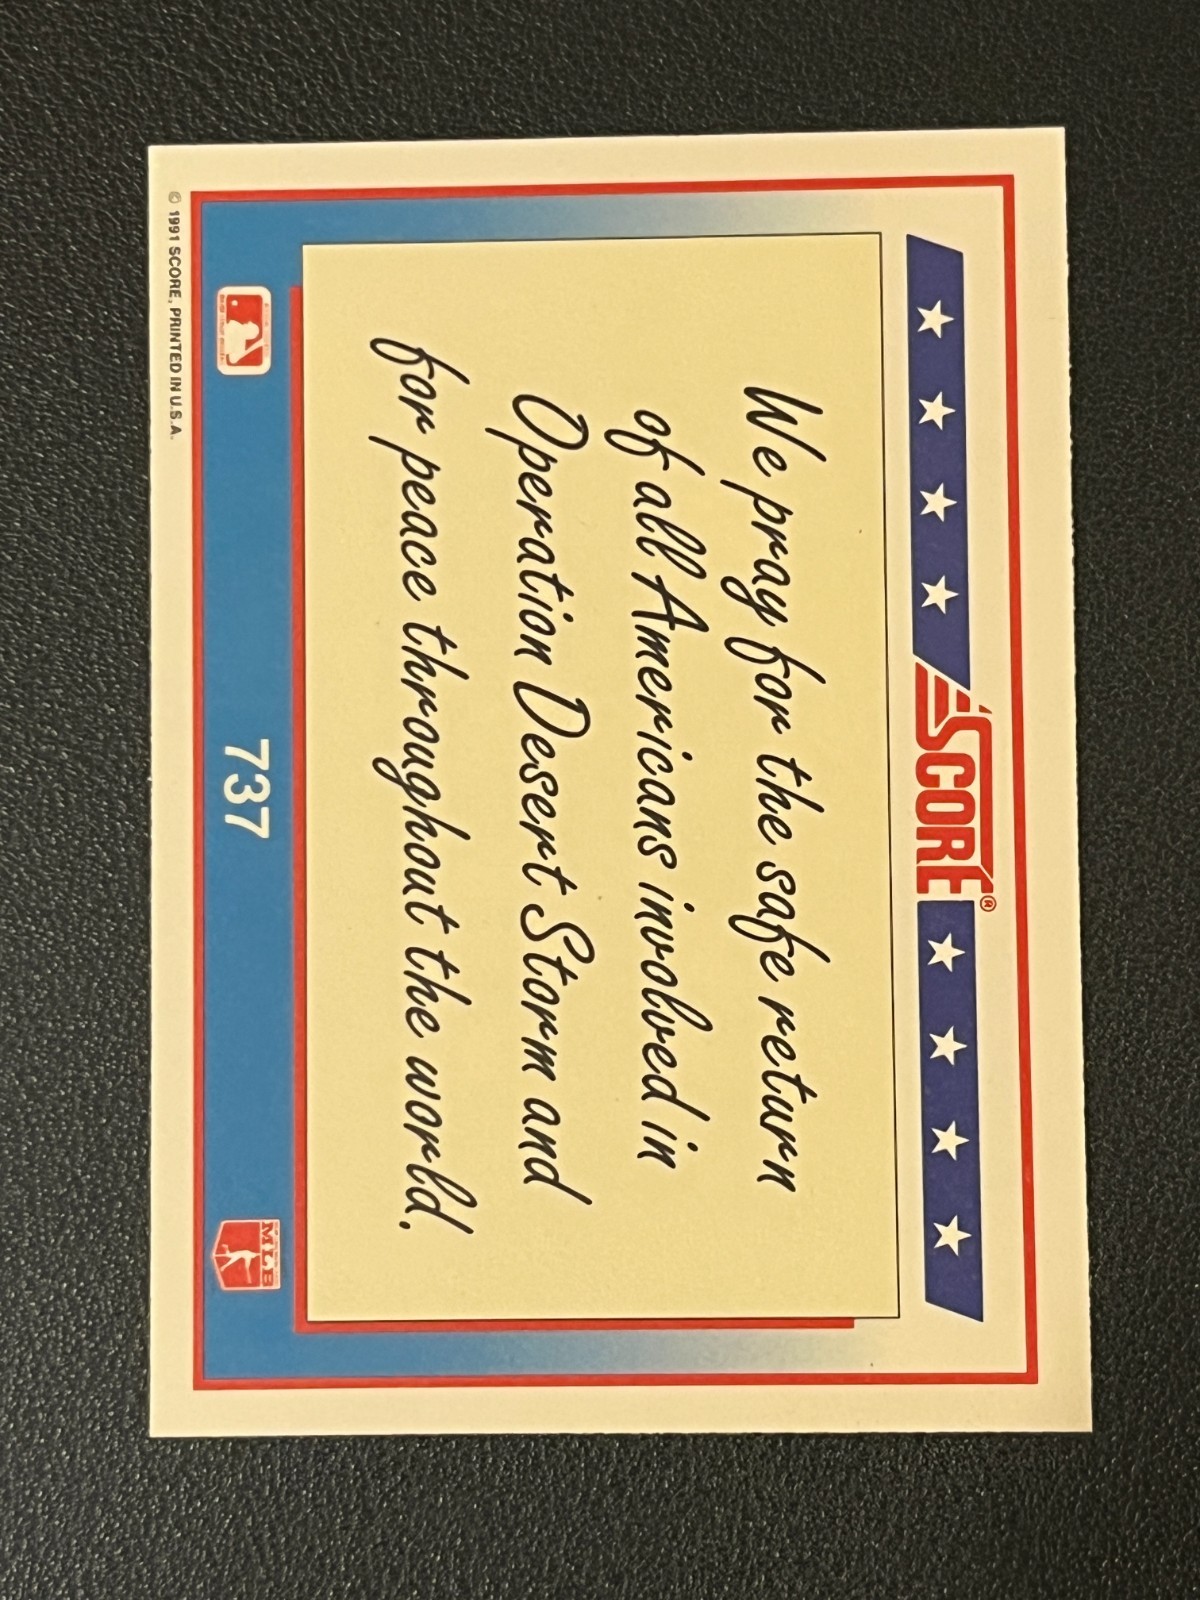 SCORE®
We pray for the safe return
of all Americans involved in
Operation Desert Storm and
for peace throughout the world.
737
MLB
© 1991 SCORE, PRINTED IN U.S.A.